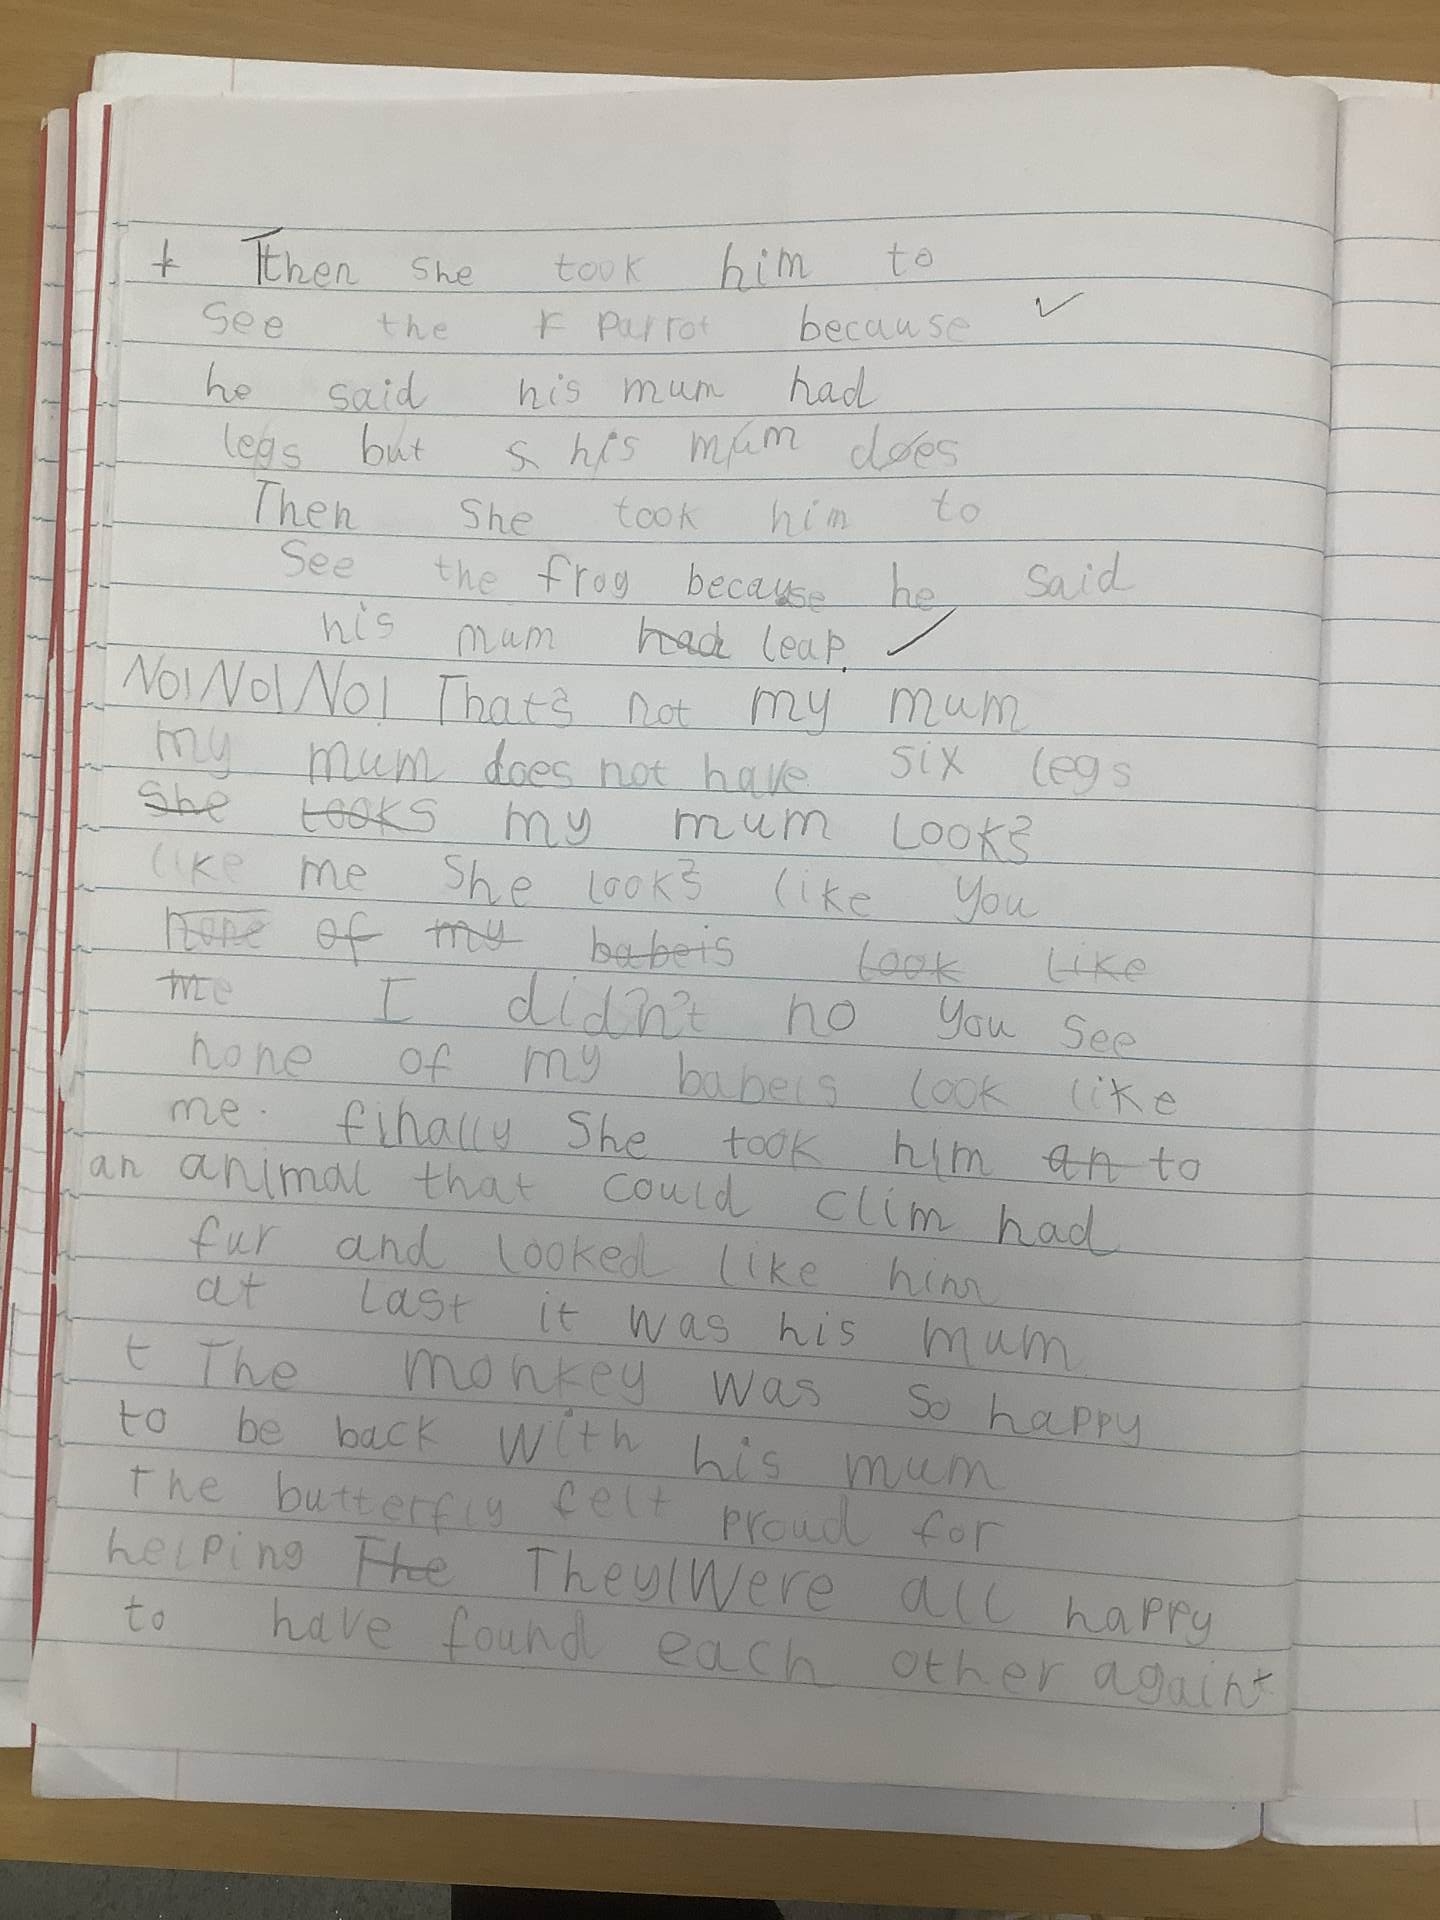 t Then she took him to
see the r parrot because
he said his mum had
legs but s his mum does
Then she took him to
see the frog because he said
his mum had leap.
No! No! No! That's not my mum
my mum does not have six legs
she looks my mum looks
like me she looks like you
none of my babeis look like
me I didn't no you see
none of my babeis look like
me. finally she took him an to
an animal that could clim had
fur and looked like him
at last it was his mum
t The monkey was so happy
to be back with his mum
the butterfly felt proud for
helping The They were all happy
to have found each other again